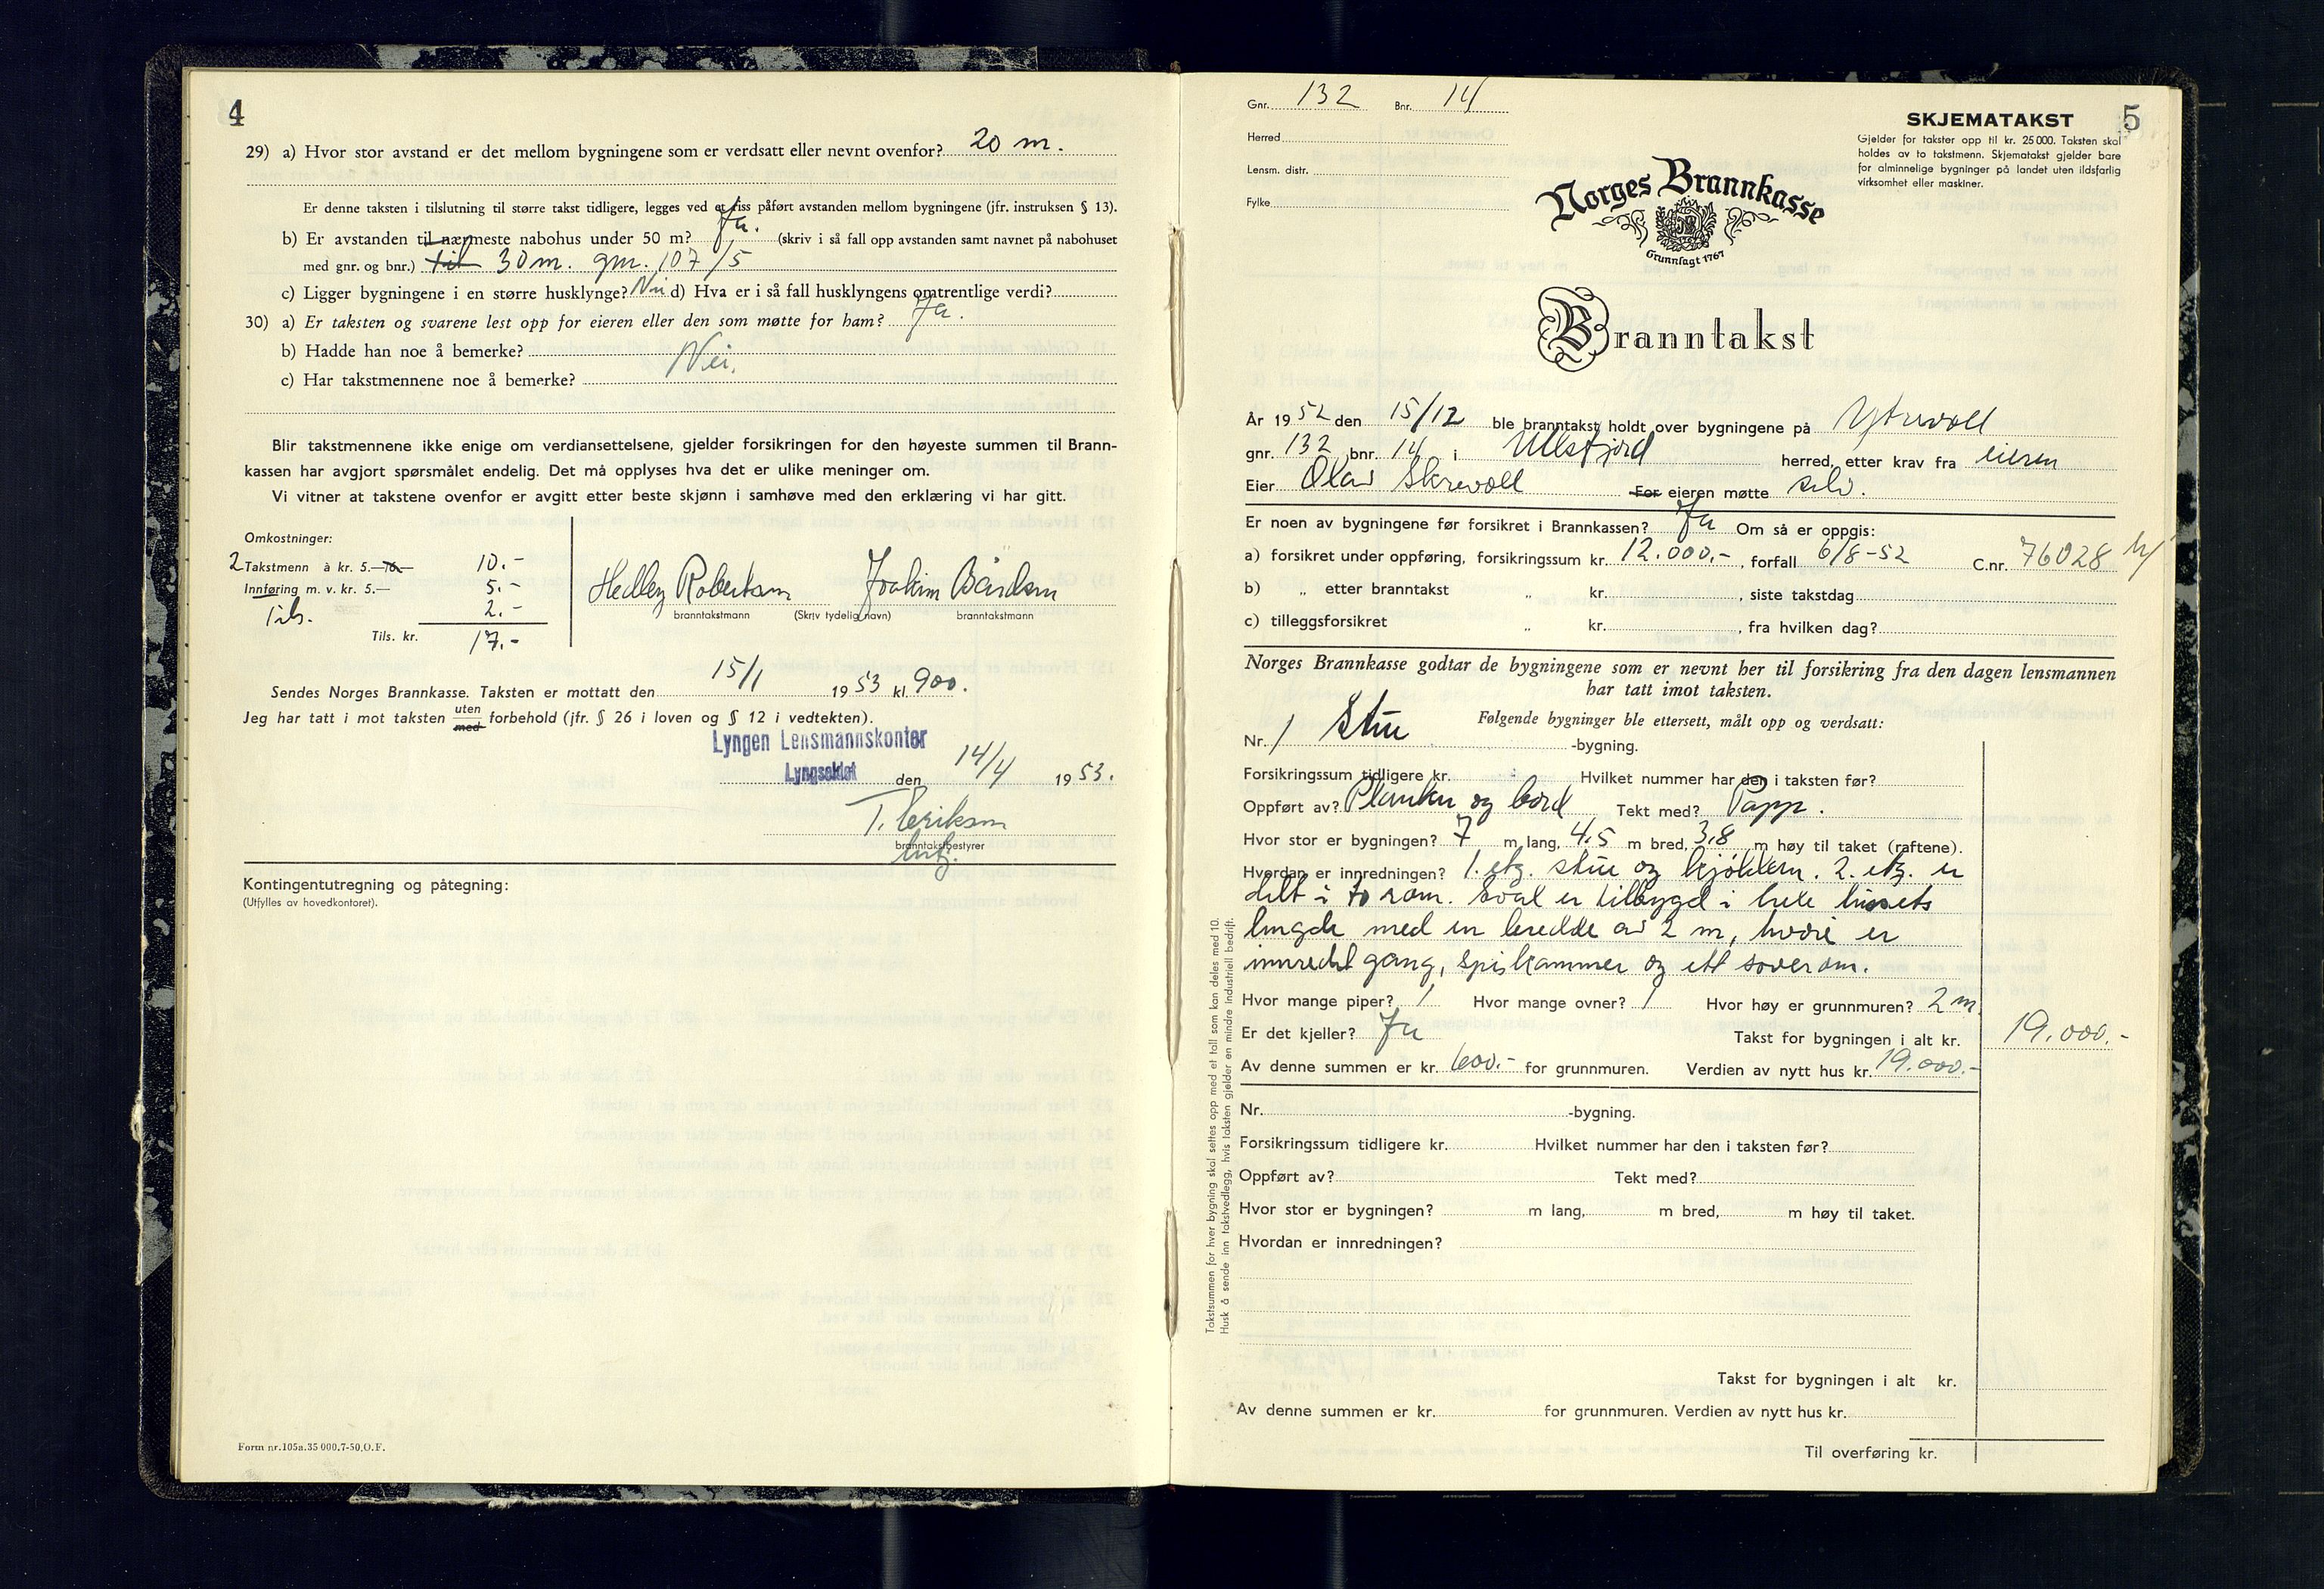 4
29) a) Hvor stor avstand er det mellom bygningene som er verdsatt eller nevnt ovenfor? 20 m.
Er denne taksten i tilslutning til større takst tidligere, legges ved et riss påført avstanden mellom bygningene (jfr. instruksen § 13).
b) Er avstanden til nærmeste nabohus under 50 m? Ja. (skriv i så fall opp avstanden samt navnet på nabohuset
med gnr. og bnr.) til 30 m. gnr. 107/5
c) Ligger bygningene i en større husklynge? Nei d) Hva er i så fall husklyngens omtrentlige verdi?
30) a) Er taksten og svarene lest opp for eieren eller den som møtte for ham? Ja.
b) Hadde han noe å bemerke?
Nei.
c) Har takstmennene noe å bemerke?
Blir takstmennene ikke enige om verdiansettelsene, gjelder forsikringen for den høyeste summen til Brann-
kassen har avgjort spørsmålet endelig. Det må opplyses hva det er ulike meninger om.
Vi vitner at takstene ovenfor er avgitt etter beste skjønn i samhøve med den erklæring vi har gitt.
Omkostninger:
2 Takstmenn à kr. 5.—10.— 10.-
Innføring m. v. kr. 5.— 5.-
Tils. 2.-
Tils. kr. 17.-
Hedley Robertsen Joakim Bårdsen
branntakstmann (Skriv tydelig navn) branntakstmann
Sendes Norges Brannkasse. Taksten er mottatt den 15/1 1953 kl. 900.
Jeg har tatt i mot taksten uten med forbehold (jfr. § 26 i loven og § 12 i vedtekten).
Lyngen Lensmannskontor
Lyngseidet den 14/4 1953.
T. Eriksen
branntakstbestyrer
Kontingentutregning og påtegning:
(Utfylles av hovedkontoret).
Form nr. 105a. 35 000. 7-50. O. F.
5
Gnr. 132 Bnr. 14
Herred
Lensm. distr.
Fylke
SKJEMATAKST
Gjelder for takster opp til kr. 25 000. Taksten skal
holdes av to takstmenn. Skjematakst gjelder bare
for alminnelige bygninger på landet uten ildsfarlig
virksomhet eller maskiner.
Norges Brannkasse
Grunnlagt 1767
Branntakst
År 1952 den 15/12 ble branntakst holdt over bygningene på Ytrevoll
gnr. 132 bnr. 14 i Ullsfjord herred, etter krav fra eieren
Eier Olav Skrevoll For eieren møtte selv.
Er noen av bygningene før forsikret i Brannkassen? Ja Om så er oppgis:
a) forsikret under oppføring, forsikringssum kr. 12.000.-, forfall 6/8-52 C.nr. 76028
b) „ etter branntakst „ kr. , siste takstdag
c) tilleggsforsikret „ kr. , fra hvilken dag?
Norges Brannkasse godtar de bygningene som er nevnt her til forsikring fra den dagen lensmannen
har tatt imot taksten.
Følgende bygninger ble ettersett, målt opp og verdsatt:
Nr. 1 Stue -bygning.
Forsikringssum tidligere kr. Hvilket nummer har den i taksten før?
Oppført av? Planker og bord Tekt med? Papp.
Hvor stor er bygningen? 7 m lang, 4,5 m bred, 3,8 m høy til taket (raftene).
Hvordan er innredningen? 1. etg. stue og kjøkken. 2. etg. er
delt i to rom. Sval er tilbygd i hele husets
lengde med en bredde av 2 m, hvori er
innredet gang, spiskammer og ett soverom.
Hvor mange piper? 1 Hvor mange ovner? 1 Hvor høy er grunnmuren? 2 m.
Er det kjeller? Ja Takst for bygningen i alt kr. 19.000.-
Av denne summen er kr. 600.- for grunnmuren. Verdien av nytt hus kr. 19.000.-
Nr. -bygning.
Forsikringssum tidligere kr. Hvilket nummer har den i taksten før?
Oppført av? Tekt med?
Hvor stor er bygningen? m lang, m bred, m høy til taket.
Hvordan er innredningen?
Takst for bygningen i alt kr.
Av denne summen er kr. for grunnmuren. Verdien av nytt hus kr.
Til overføring kr.
Takstsummen for hver bygning skal settes opp med et tall som kan deles med 10.
Husk å sende inn takstvedlegg, hvis taksten gjelder en mindre industriell bedrift.